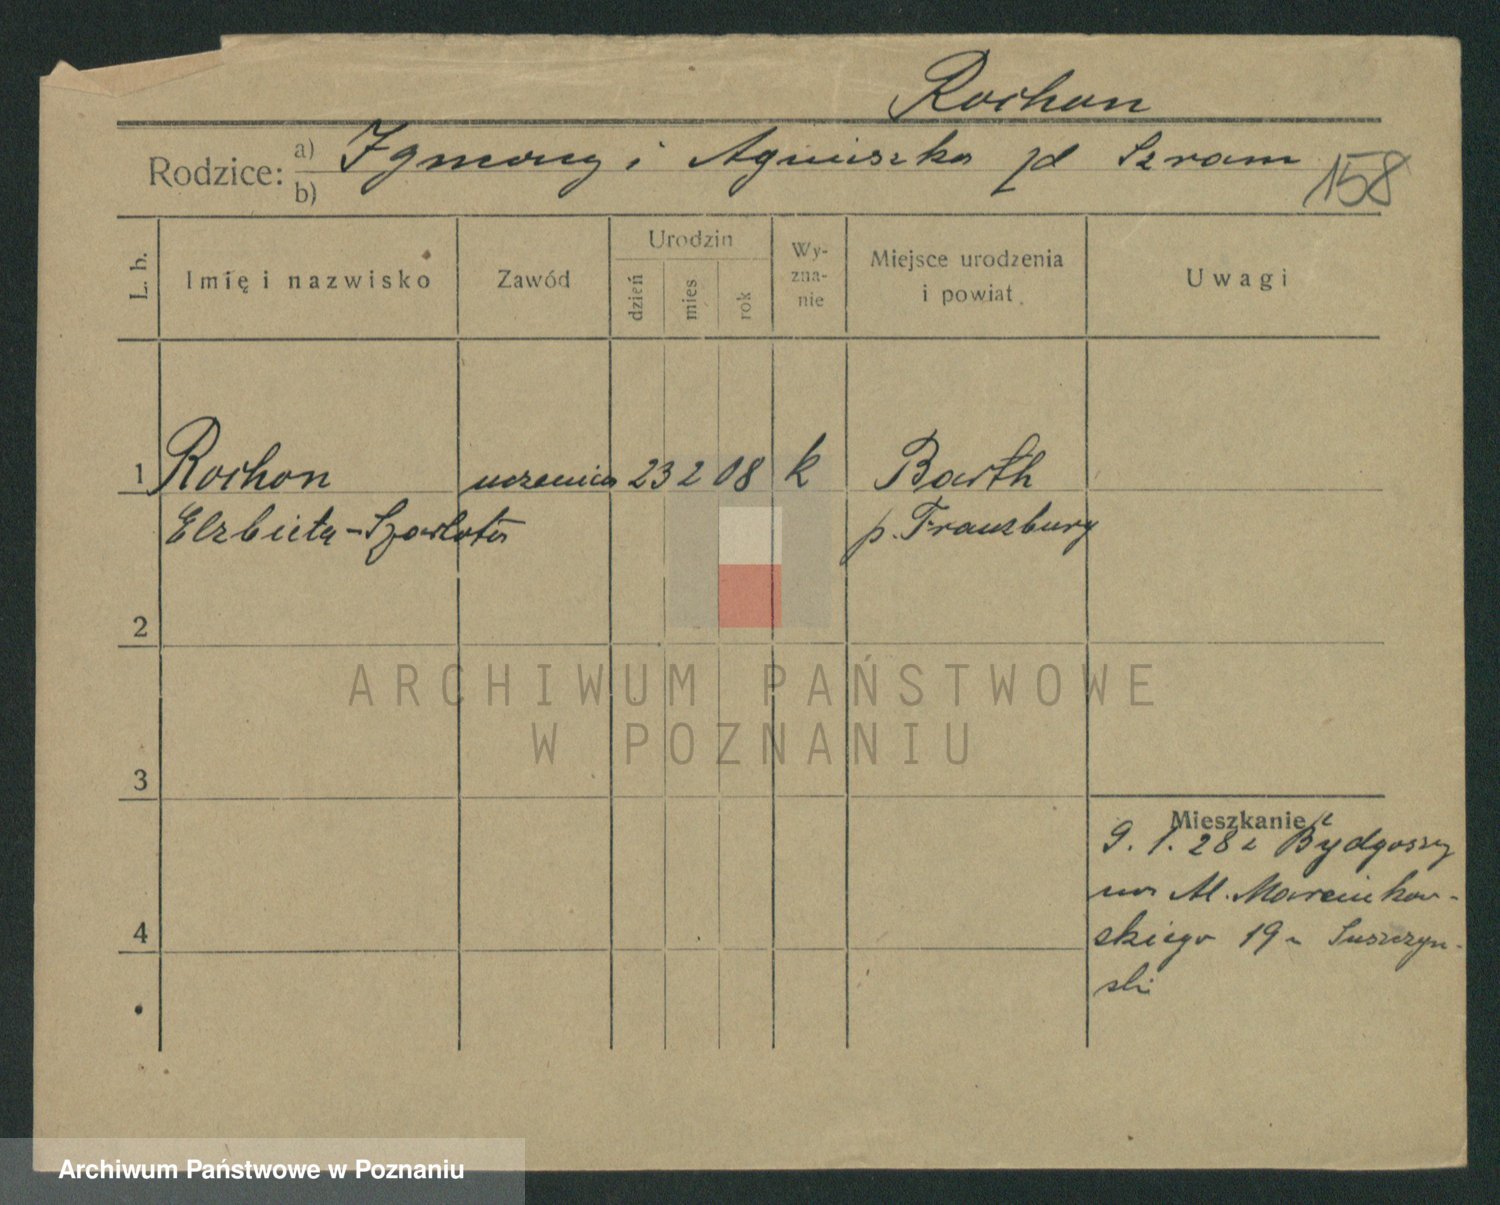 Rochon
Rodzice: a) Zygmony i Agnieszka zd Szram
b)
158
L. b.
Imię i nazwisko
Zawód
Urodzin
dzień
mies
rok
Wy-
zna-
nie
Miejsce urodzenia
i powiat
Uwagi
1 Rochon uczenica 23 2 08 k Barth
Elzbieta-Szarlota p. Franzburg
2
3
4
Mieszkanie
9. 1. 28 z Bydgoszy
na Al. Marcinkow-
skiego 19 Suszczyn-
ski
ARCHIWUM PAŃSTWOWE
W POZNANIU
Archiwum Państwowe w Poznaniu